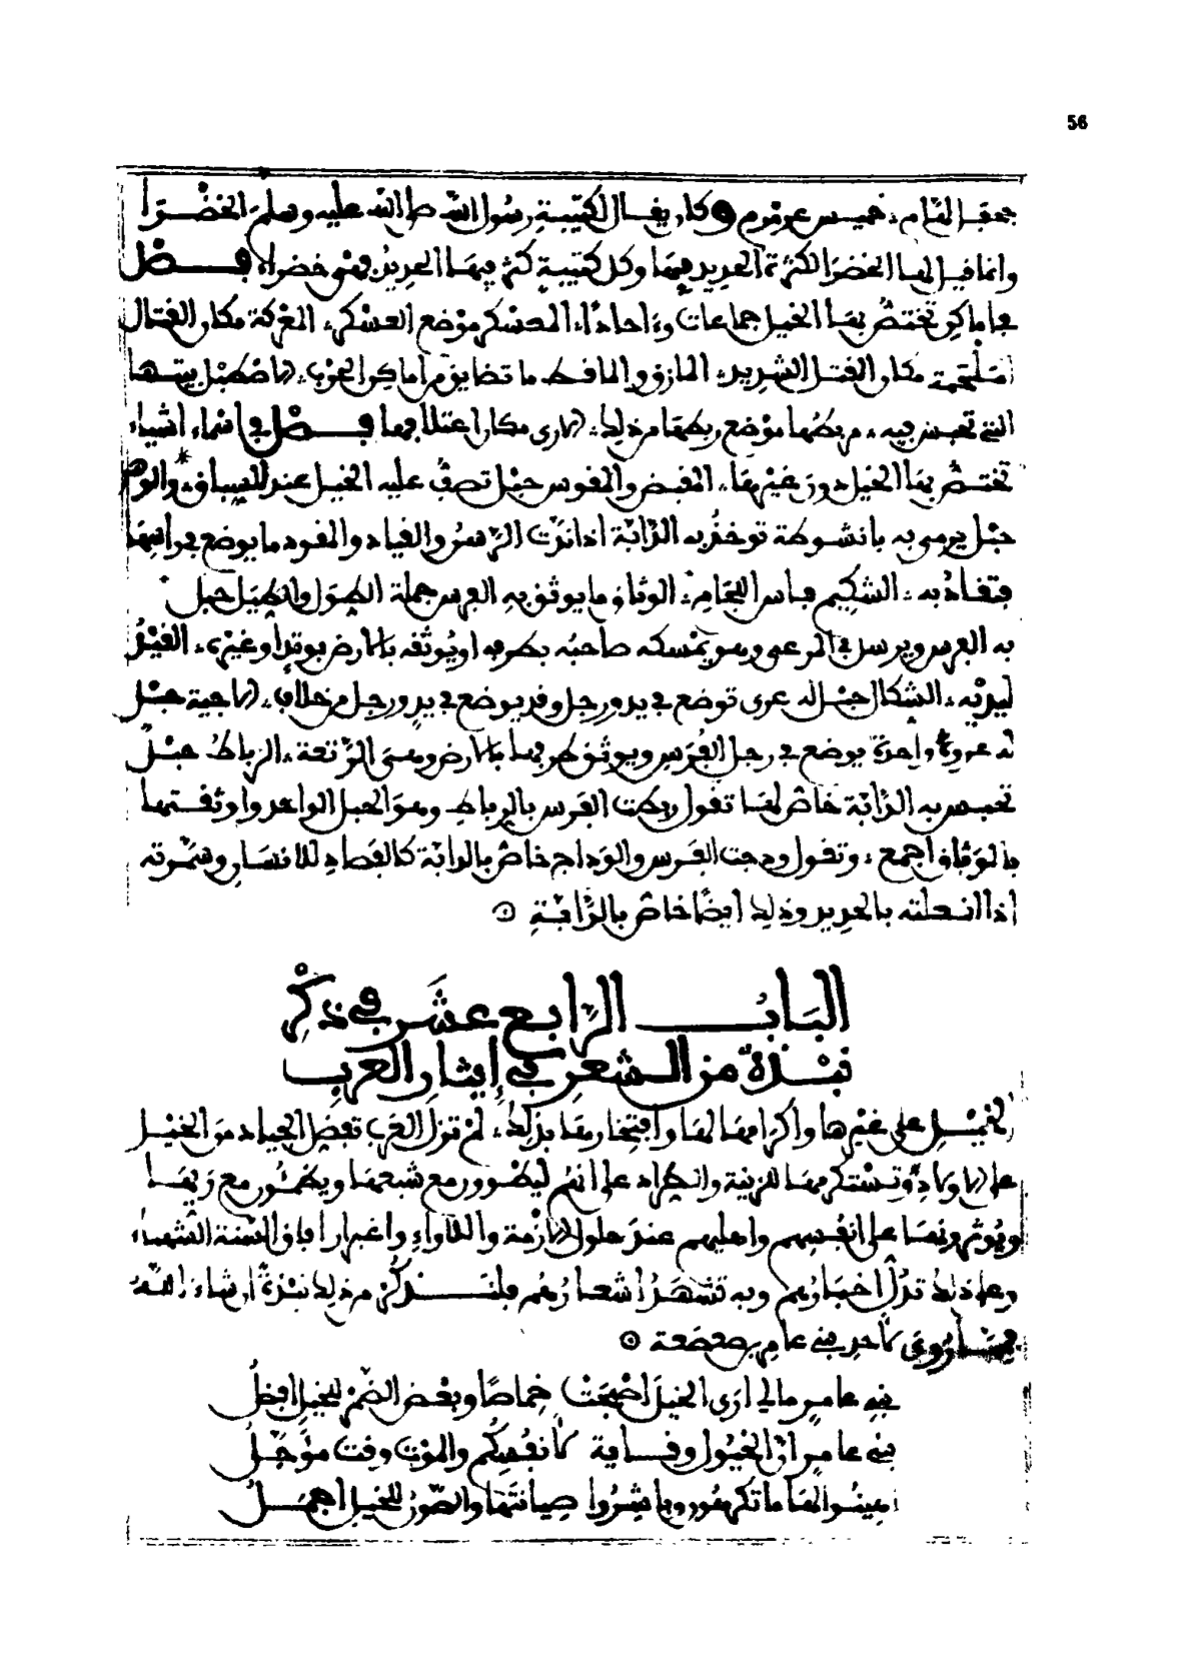 56
وكان يقال لكتيبة رسول الله صلى الله عليه وسلم الخضرا
وانما قيل لها الخضرا لكثرة الحديد فيها وكل كتيبة كثر فيها الحديد فهي خضراء فصل
في اماكن تختص بها الخيل جماعات وءاحادا، المعسكر موضع العسكر، المعركة مكان القتال
مكان القتل الشديد، المازق والماقط ما تضايق من اماكن الحرب، الاصطبل بيتها
التي تحبس فيه، مربطها موضع ربطها من ذلك، الاري مكان اعتلافها فصل في اسماء اشياء
تختص بها الخيل دون غيرها، المقبض والمقوس حبل تصف عليه الخيل عند السباق، والوهق
حبل يرمى به بانشوطة توخذ به الدابة اذا ندت الرسن والقياد والمقود ما يوضع في راسها
فتقاد به، الشكيم فاس اللجام، الوثاق ما يوثق به الفرس جملة الطول والطيل حبل
به الفرس ويرسل في المرعى وهو يمسكه صاحبه بطرفه او يوثقه بالارض بوتد او غيره، القيد
ليديه، الشكال حبل له عرى توضع في يد ورجل وقد يوضع في يد ورجل من خلاف، الاخية حبل
له عروة واحدة يوضع في رجل الفرس ويوثق طرفها بالارض، الرباط حبل
تحبس به الدابة خاص لها تقول ربطت الفرس بالرباط وهو الحبل الواحد واوثقتها
بالوثاق اجمع، وتقول ودجت الفرس والوداج خاص بالدابة كالفصاد للانسان وسمرته
اذا انعلته بالحديد وذلك ايضا خاص بالدابة
الباب الرابع عشر في ذكر
نبذة من الشعر في إيثار العرب
الخيل على غيرها واكرامها لها وافتخارها بذلك، لم تزل العرب تفضل الجياد من الخيل
على الاولاد وتستكرمها للزينة والطراد على انهم ليطوون مع شبعها ويظمئون مع ريها
ويوثرونها على انفسهم واهليهم عند حلول الازمة واللاواء واغبرار افاق السنة الشهباء
وعلى ذلك تدل اخبارهم وبه تشهد اشعارهم فلنذكر من ذلك نبذة ان شاء الله
لاحد بني عامر بن صعصعة
بني عامر ما لي ارى الخيل اصبحت خماصا وبعض الضمر للخيل افضل
بني عامر ان الخيول وقاية لانفسكم والموت وقت مؤجل
اهينوا لها ما تكرمون وباشروا صيانتها والصون للخيل اجمل